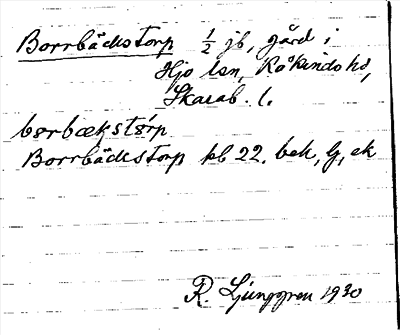 Borrbäckstorp 1/2 jb, gård i
Hjo lsn, Kåkinds hd,
Skarab. l.
bɵrbækstɵrp
Borrbäckstorp kb 22. bek, G, ek
R. Ljunggren 1930